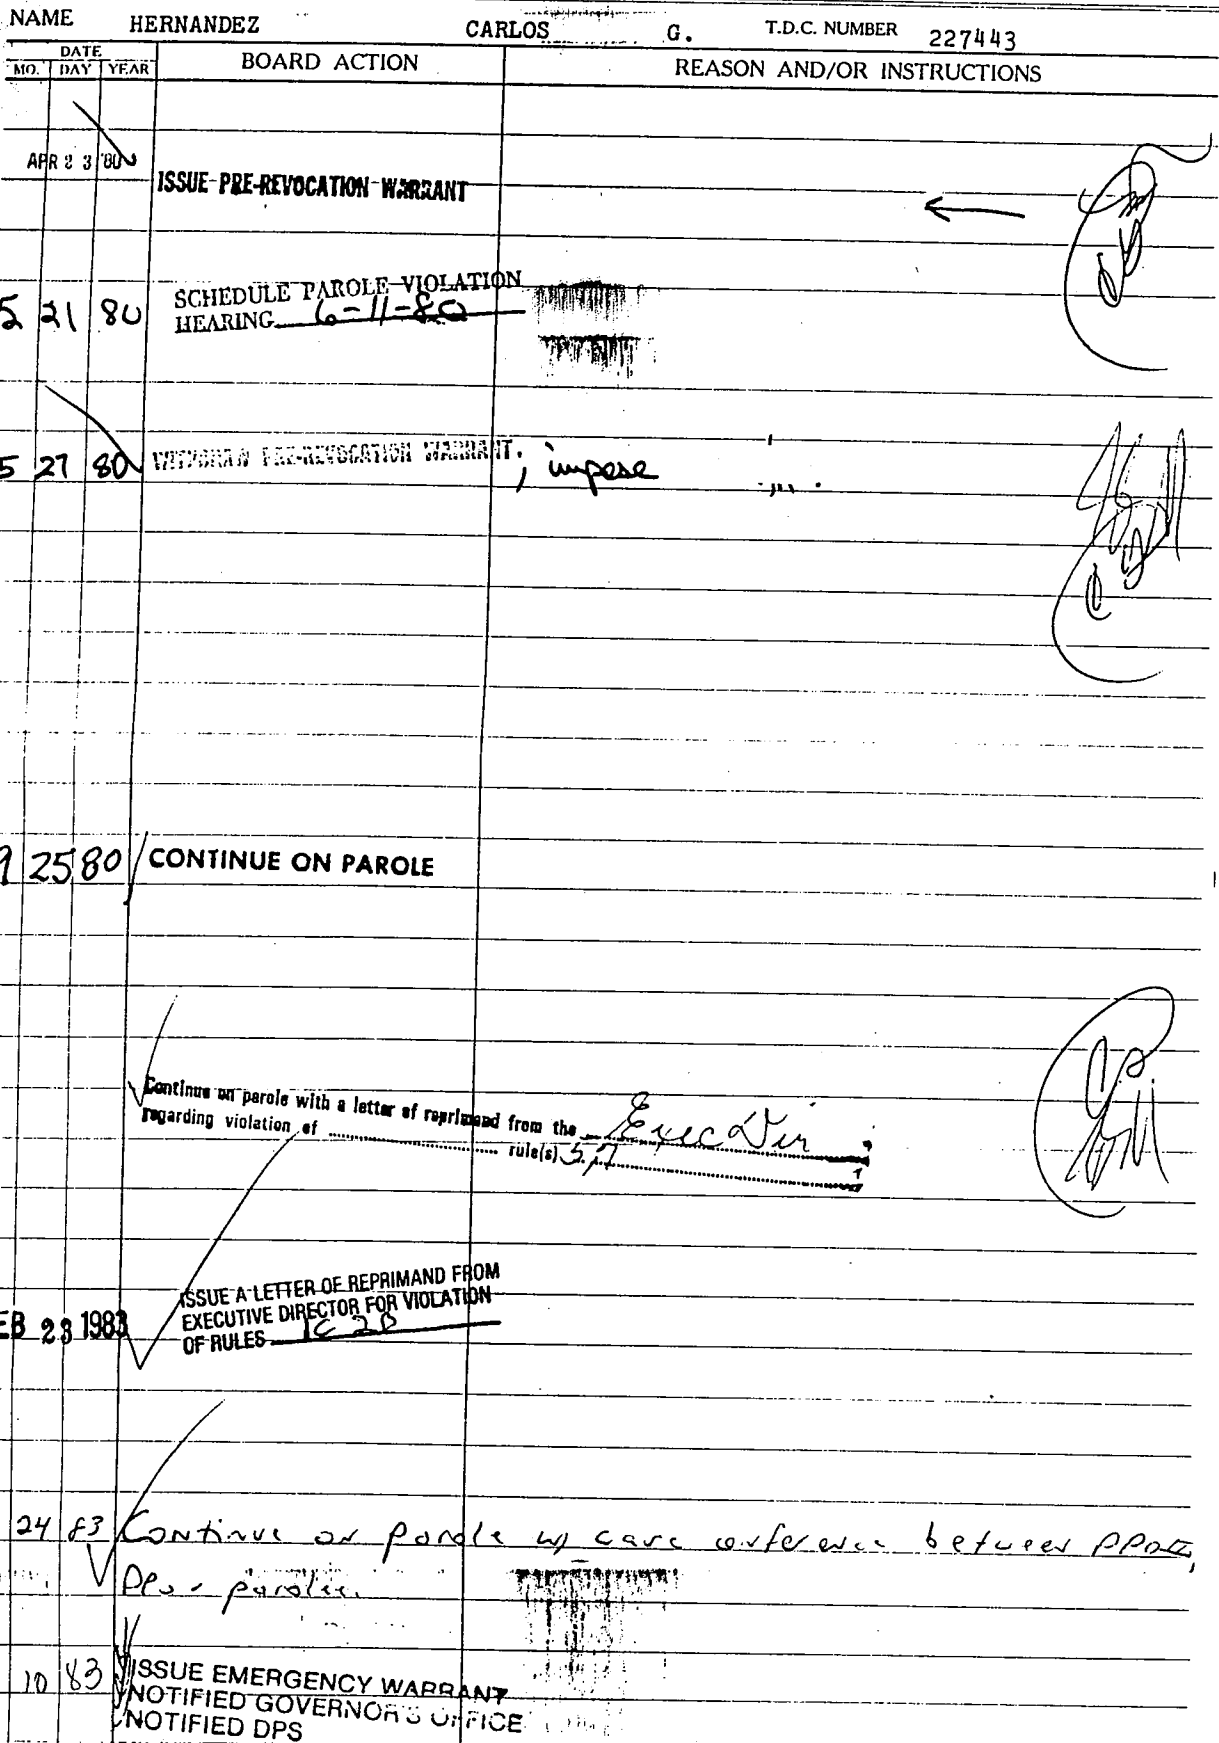 NAME HERNANDEZ CARLOS G. T.D.C. NUMBER 227443
DATE BOARD ACTION REASON AND/OR INSTRUCTIONS
MO. DAY YEAR
APR 23 '80
ISSUE PRE-REVOCATION WARRANT
5 21 80 SCHEDULE PAROLE VIOLATION
HEARING 6-11-80
5 27 80 WITHDRAW PRE-REVOCATION WARRANT. , impose
9 25 80 CONTINUE ON PAROLE
Continue on parole with a letter of reprimand from the Exec Dir
regarding violation of rule(s) 5,7
ISSUE A LETTER OF REPRIMAND FROM
EB 23 1983 EXECUTIVE DIRECTOR FOR VIOLATION
OF RULES 1C 2B
24 83 Continue on parole w/ case conference between
parolee.
10 83 ISSUE EMERGENCY WARRANT
NOTIFIED GOVERNOR'S OFFICE
NOTIFIED DPS